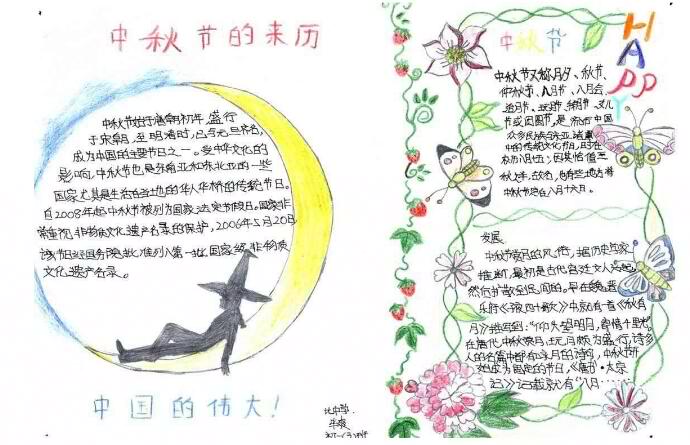 中秋节的来历
中秋节始于唐朝初年，盛行
于宋朝，至明清时，已与元旦齐名，
成为中国的主要节日之一。受中华文化的
影响，中秋节也是东南亚和东北亚的一些
国家尤其是生活在当地的华人华侨的传统节日。
自2008年起中秋节被列为国家法定节假日。国家非
常重视非物质文化遗产名录的保护，2006年5月20日，
该节日经国务院批准列入第一批国家级非物质
文化遗产名录。
中国的伟大！
中秋节
HAPPY
中秋节又称月夕、秋节、
仲秋节、八月节、八月会、
追月节、玩月节、拜月节、女儿
节或团圆节，是流行于中国
众多民族与东亚诸国
中的传统文化节日，时在
农历八月十五；因其恰值三
秋之半，故名，也有些地方将
中秋节定在八月十六日。
发展：
中秋节赏月的风俗，据历史学家
推断，最初是古代宫廷文人兴起，
然后扩散至民间的。早在魏晋
乐府《子夜四十歌》中就有一首《秋有
月》描写到：“仰头望明月，寄情千里光。”
在唐代，中秋赏月、玩月颇为盛行，许多
人的名篇中都有咏月的诗句，中秋节开
始成为固定的节日，《唐书·太宗
记》记载就有“八月……